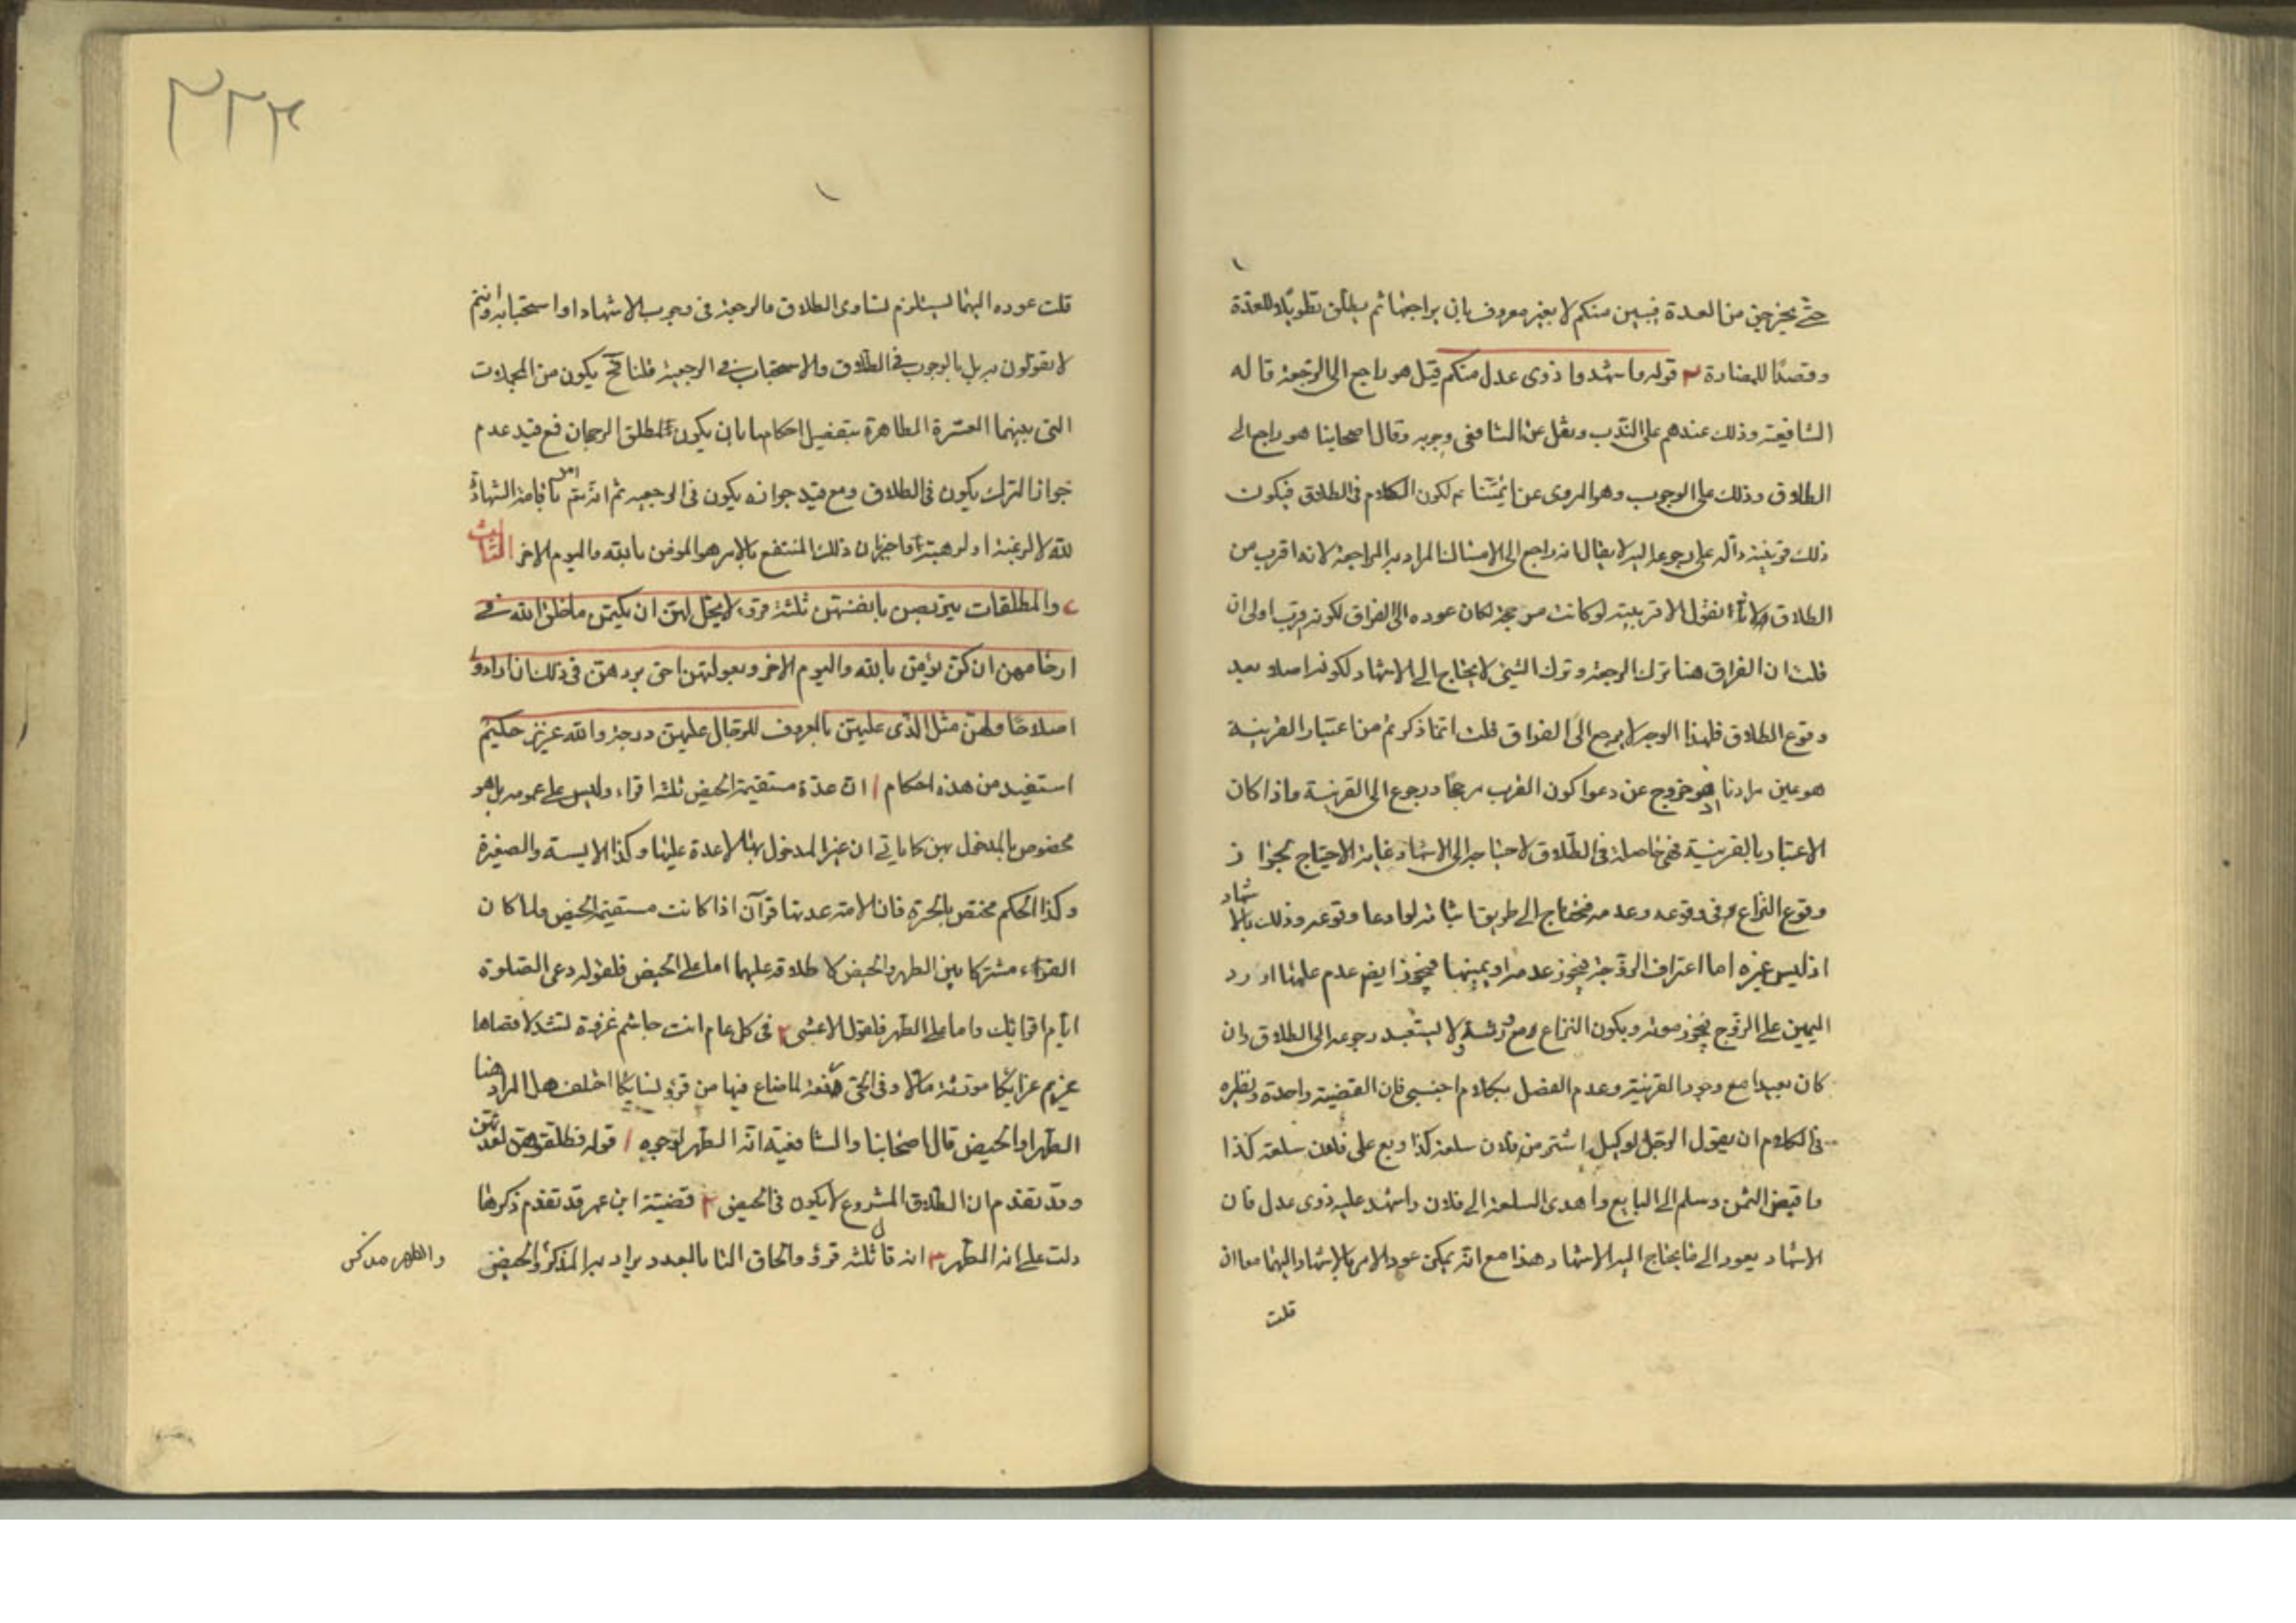 حتى يخرجن من العدة فيبين منكم لا بغير معروف بان يراجعها ثم يطلق تطويلا للعدة
وقصدًا للمضارة ٣ قوله واشهدوا ذوى عدل منكم قيل هو راجع الى الرجعة قاله
الشافعية وذلك عندهم على الندب ونقل عن الشافعى وجوبه وقال اصحابنا هو راجع الى
الطلاق وذلك على الوجوب وهو المروى عن ائمتنا ع لكون الكلام فى الطلاق فيكون
ذلك قرينة دالة على رجوعه اليه لا يقال انه راجع الى الامساك المراد به المراجعة لانه اقرب من
الطلاق لانا نقول الاقربية لو كانت مرجحة لكان عوده الى الفراق لكونه اقرب اولى ان
قلت ان الفراق هنا ترك الرجعة وترك الشيئ لا يحتاج الى الاشهاد لكونه اصلا بعد
وقوع الطلاق فلهذا الوجه لا يرجع الى الفراق قلت انما ذكرتم من اعتبار القرينة
هو عين مرادنا اذ هو خروج عن دعوا كون القرب مرجحًا ورجوع الى القرينة واذا كان
الاعتبار بالقرينة فهى حاصلة فى الطلاق لاحتياجه الى الاشهاد غاية الاحتياج لجواز
وقوع النزاع فى وقوعه وعدمه فيحتاج الى طريق اثباته لو ادعا وقوعه وذلك بالاشهاد
اذ ليس غيره اما اعتراف الزوجة فيجوز عدمه او يمينها فيجوز ايضا عدم علمها او رد
اليمين على الزوج فيجوز موته ويكون النزاع مع ورثته ولا يستبعد رجوعه الى الطلاق وان
كان بعيدا مع وجود القرينة وعدم الفصل بكلام اجنبى فان القضية واحدة ونظيره
فى الكلام ان يقول الرجل لوكيله اشتر من فلان سلعة كذا وبع على فلان سلعة كذا
واقبض الثمن وسلم الى البايع واهدى السلعة الى فلان واشهد عليه ذوى عدل فان
الاشهاد يعود الى ما يحتاج اليه الاشهاد هذا مع انه يمكن عود الامر بالاشهاد اليهما معا ان
قلت
٢٢٣
قلت عوده اليهما يستلزم تساوى الطلاق والرجعة فى وجوب الاشهاد او استحبابه وانتم
لا تقولون به بل بالوجوب فى الطلاق والاستحباب فى الرجعة قلنا فح يكون من المجملات
التى بينها العترة الطاهرة بتفصيل احكامها بان يكون لمطلق الرجحان فمع قيد عدم
جواز الترك يكون فى الطلاق ومع قيد جوازه يكون فى الرجعة ثم انه تم امر باقامة الشهادة
لله لا لرغبة او لرهبة واخبر ان ذلك المنتفع بالامر هو المومن بالله واليوم الاخر الثالث
والمطلقات يتربصن بانفسهن ثلثة قروء لا يحل لهن ان يكتمن ما خلق الله فى
ارحامهن ان كن يؤمن بالله واليوم الاخر وبعولتهن احق بردهن فى ذلك ان ارادوا
اصلاحًا ولهن مثل الذى عليهن بالمعروف للرجال عليهن درجة والله عزيز حكيم
استفيد من هذه احكام ١ ان عدة مستقيمة الحيض ثلثة اقراء وليس على عمومه بل هو
مخصوص بالمدخول بهن كما ياتى ان غير المدخول بها لا عدة عليها وكذا الايسة والصغيرة
وكذا الحكم مختص بالحرة فان الامة عدتها قرآن اذا كانت مستقيمة الحيض ولما كان
القراء مشتركا بين الطهر والحيض لاطلاقه عليهما اما على الحيض فلقوله دعى الصلوة
ايام اقرائك واما على الطهر فلقول الاعشى ٢ فى كل عام انت جاشم غزوة تشد لاقصاها
عزيم عزائكا مورثة مالا وفى الحى رفعة لما ضاع فيها من قروء نسائكا اختلف هل المراد هنا
الطهر او الحيض قال اصحابنا والشافعية انه الطهر لوجوه ١ قوله فطلقوهن لعدتهن
وقد تقدم ان الطلاق المشروع لا يكون فى الحيض ٢ قضية ابن عمر قد تقدم ذكرها
دلت على انه الطهر ٣ انه قال ثلثة قروء والحاق التا بالعدد يراد به المذكر والحيض
والطهر مذكر